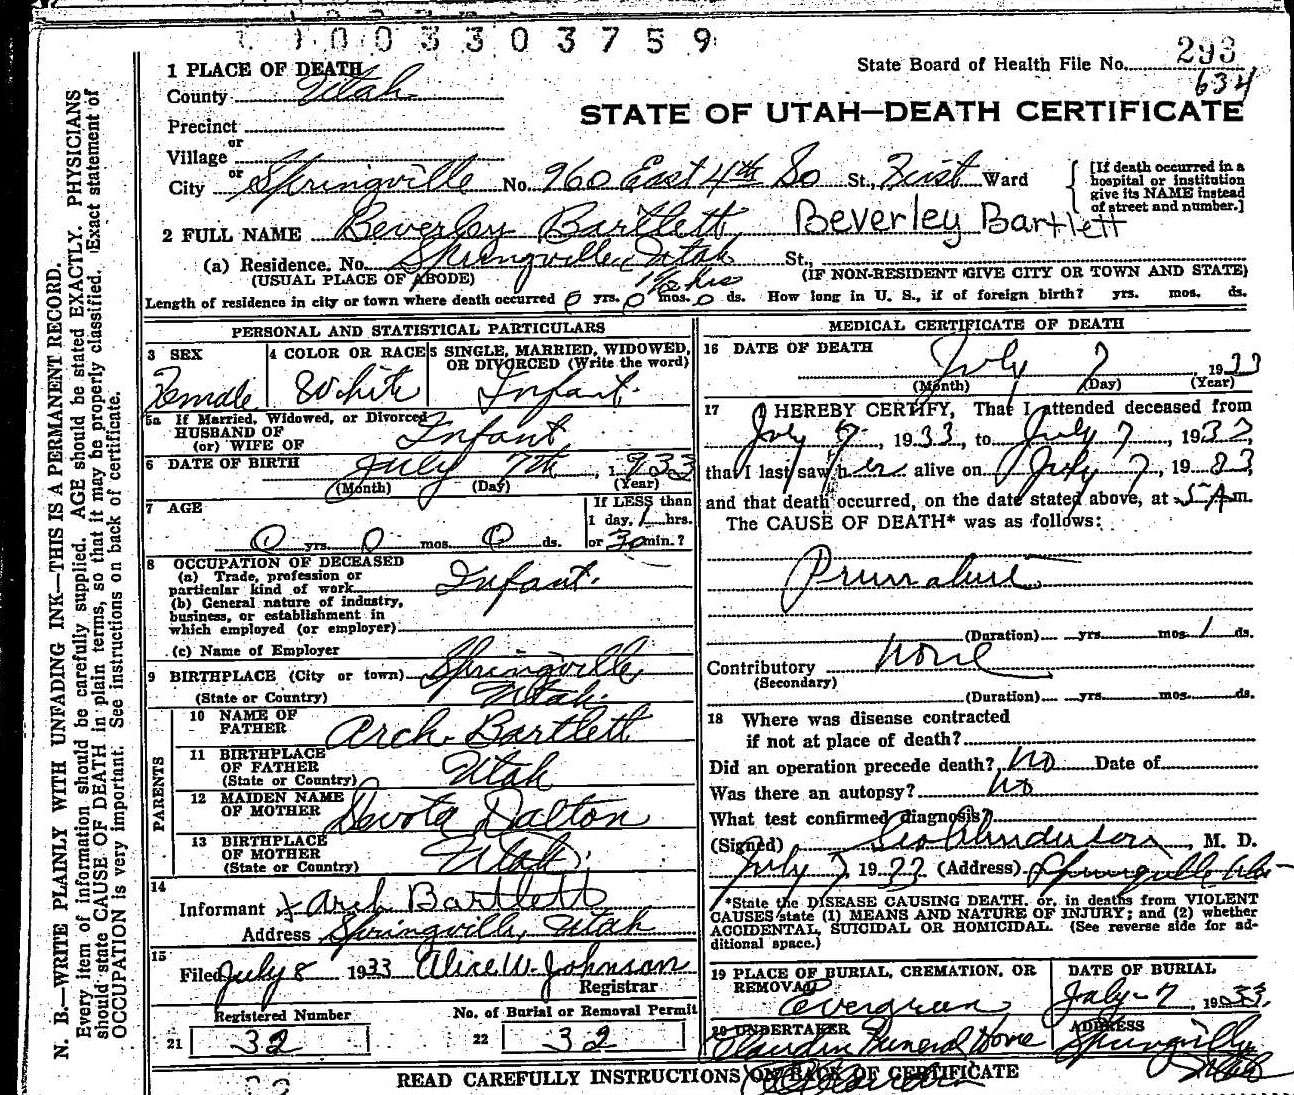 1 1003303759
1 PLACE OF DEATH
State Board of Health File No. 293
634
County Utah
STATE OF UTAH—DEATH CERTIFICATE
Precinct
or
Village
or
City Springville No. 960 East 4th So St. First Ward
[If death occurred in a
hospital or institution
give its NAME instead
of street and number.]
2 FULL NAME Beverley Bartlett Beverley Bartlett
(a) Residence. No. Springville, Utah St.,
(USUAL PLACE OF ABODE) (IF NON-RESIDENT GIVE CITY OR TOWN AND STATE)
Length of residence in city or town where death occurred 0 yrs. 0 mos. 0 ds. How long in U. S., if of foreign birth? yrs. mos. ds.
PERSONAL AND STATISTICAL PARTICULARS
3 SEX
Female
4 COLOR OR RACE
White
5 SINGLE, MARRIED, WIDOWED,
OR DIVORCED (Write the word)
Infant.
5a If Married, Widowed, or Divorced
HUSBAND OF
(or) WIFE OF Infant
6 DATE OF BIRTH July 7th, 1933
(Month) (Day) (Year)
7 AGE
0 yrs. 0 mos. 0 ds.
If LESS than
1 day, 1 hrs.
or 30 min.?
8 OCCUPATION OF DECEASED
(a) Trade, profession or
particular kind of work Infant.
(b) General nature of industry,
business, or establishment in
which employed (or employer)
(c) Name of Employer
9 BIRTHPLACE (City or town) Springville
(State or Country) Utah.
PARENTS
10 NAME OF
FATHER Arch Bartlett
11 BIRTHPLACE
OF FATHER
(State or Country) Utah
12 MAIDEN NAME
OF MOTHER Devota Dalton
13 BIRTHPLACE
OF MOTHER
(State or Country) Utah.
14
Informant Arch Bartlett
Address Springville, Utah
15
Filed July 8 1933 Alice W. Johnson
Registrar
Registered Number
21 32
No. of Burial or Removal Permit
22 32
MEDICAL CERTIFICATE OF DEATH
16 DATE OF DEATH July 7, 1933
(Month) (Day) (Year)
17 I HEREBY CERTIFY, That I attended deceased from
July 7, 1933, to July 7, 1933
that I last saw her alive on July 7, 1933
and that death occurred, on the date stated above, at 5 A.m.
The CAUSE OF DEATH* was as follows:
Premature
(Duration) yrs. mos. 1 ds.
Contributory None
(Secondary)
(Duration) yrs. mos. ds.
18 Where was disease contracted
if not at place of death?
Did an operation precede death? No Date of
Was there an autopsy? No
What test confirmed diagnosis?
(Signed) Geo Anderson, M. D.
July 7 1933 (Address) Springville Utah
*State the DISEASE CAUSING DEATH, or, in deaths from VIOLENT
CAUSES state (1) MEANS AND NATURE OF INJURY; and (2) whether
ACCIDENTAL, SUICIDAL OR HOMICIDAL. (See reverse side for ad-
ditional space.)
19 PLACE OF BURIAL, CREMATION, OR
REMOVAL
Evergreen
DATE OF BURIAL
July-7, 1933.
20 UNDERTAKER
Claudin Funeral Home
ADDRESS
Springville
Utah
READ CAREFULLY INSTRUCTIONS ON BACK OF CERTIFICATE
N. B.—WRITE PLAINLY WITH UNFADING INK—THIS IS A PERMANENT RECORD.
Every item of information should be carefully supplied. AGE should be stated EXACTLY. PHYSICIANS
should state CAUSE OF DEATH in plain terms, so that it may be properly classified. Exact statement of
OCCUPATION is very important. See instructions on back of certificate.